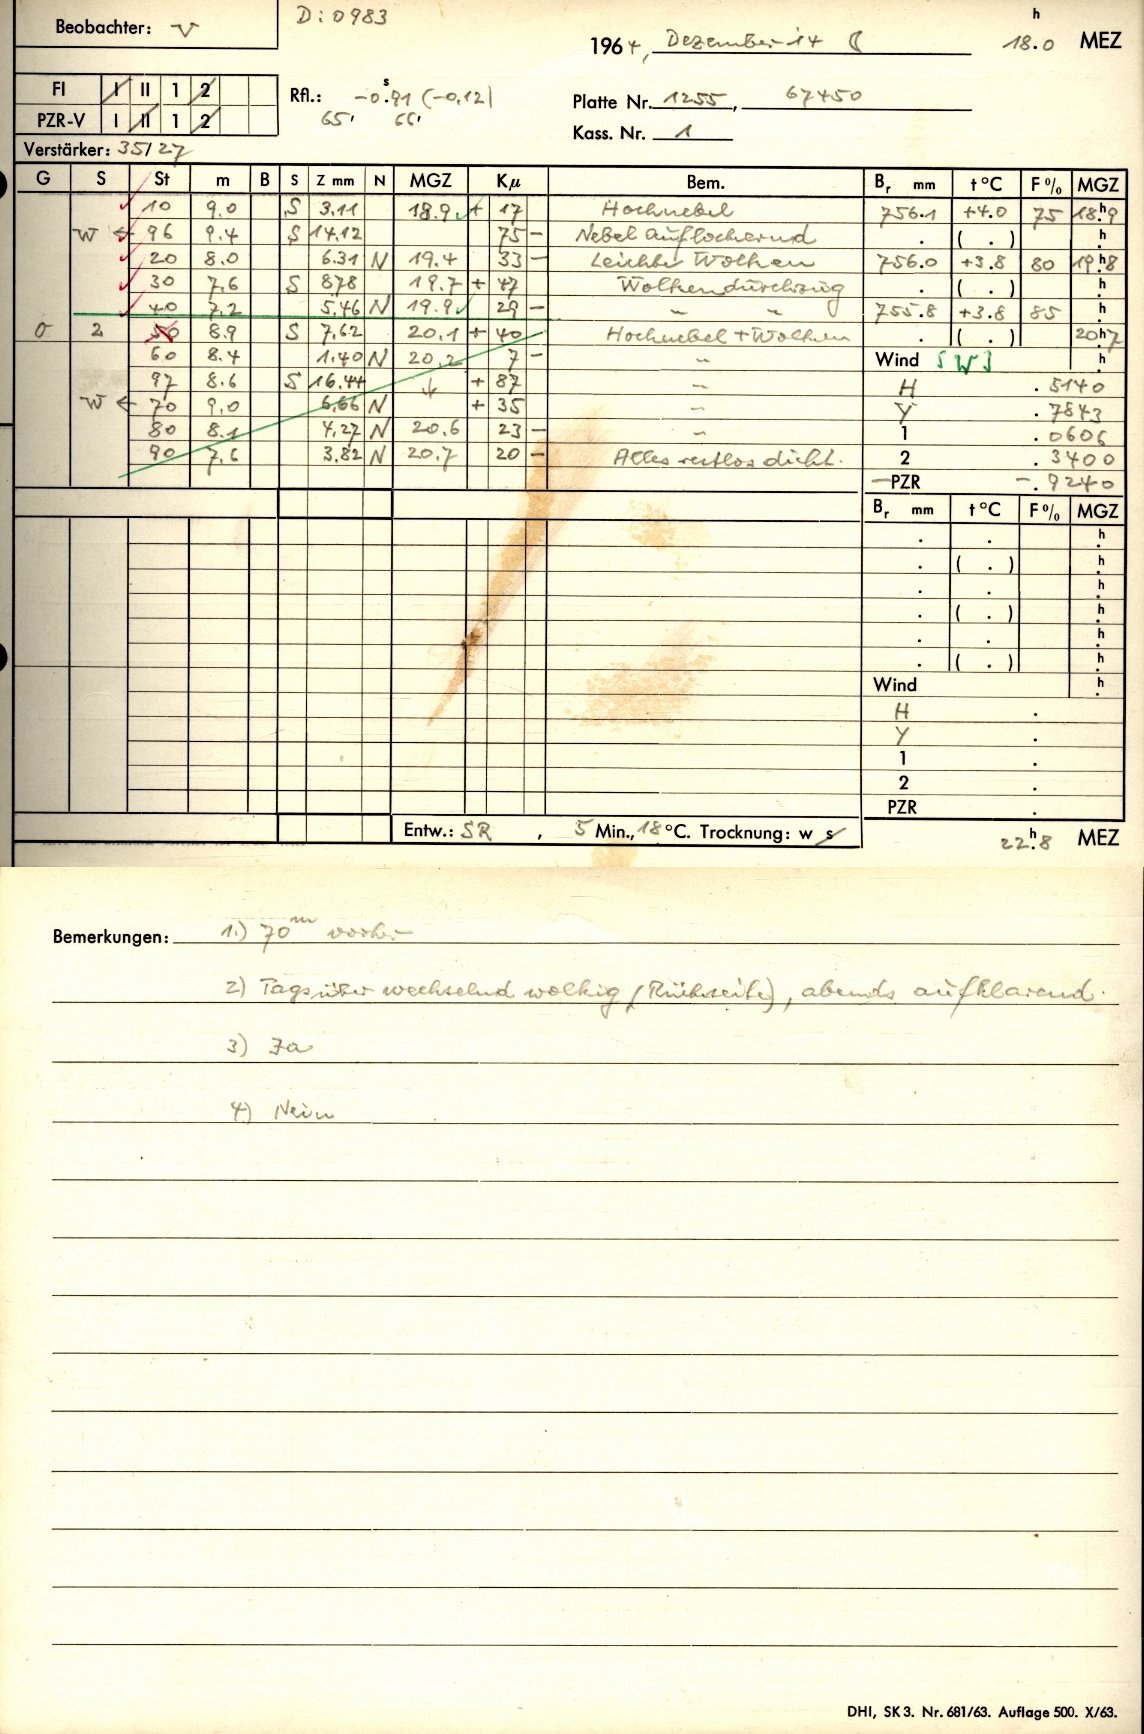 D: 0983
Beobachter: V
1964, Dezember 14 18.0 h MEZ
FI I II 1 2
PZR-V I II 1 2
Rfl.: -0.91 s (-0.12)
65' 66'
Platte Nr. 1255, 67450
Kass. Nr. 1
Verstärker: 35/27
G S St m B S Z mm N MGZ Kμ Bem. Br mm t °C F % MGZ
10 9.0 S 3.11 18.9 + 17 Hochnebel 756.1 +4.0 75 18.9 h
W ← 96 9.4 S 14.12 75 - Nebel auflockernd . ( . ) h
20 8.0 6.31 N 19.4 33 - Leichte Wolken 756.0 +3.8 80 19.8 h
30 7.6 S 8.78 19.7 + 47 Wolkendurchzug . ( . ) h
40 7.2 5.46 N 19.9 29 - " " 755.8 +3.8 85 h
0 2 50 8.9 S 7.62 20.1 + 40 Hochnebel + Wolken . ( . ) 20.7 h
60 8.4 1.40 N 20.2 7 - " Wind SW3 h
97 8.6 S 16.44 ↓ + 87 " H .5140
W ← 70 9.0 6.66 N + 35 " Y .7843
80 8.1 4.27 N 20.6 23 - " 1 .0606
90 7.6 3.82 N 20.7 20 - Alles restlos dicht. 2 .3400
-PZR -.9240
Br mm t °C F % MGZ
. . h
. ( . ) h
. . h
. ( . ) h
. . h
. ( . ) h
Wind h
H .
Y .
1 .
2 .
PZR .
Entw.: SR , 5 Min., 18 °C. Trocknung: w s
22.8 h MEZ
Bemerkungen: 1.) 70 m vorher
2) Tagsüber wechselnd wolkig (Rückseite), abends aufklarend.
3) Ja
4) Nein
DHI, SK 3. Nr. 681/63. Auflage 500. X/63.